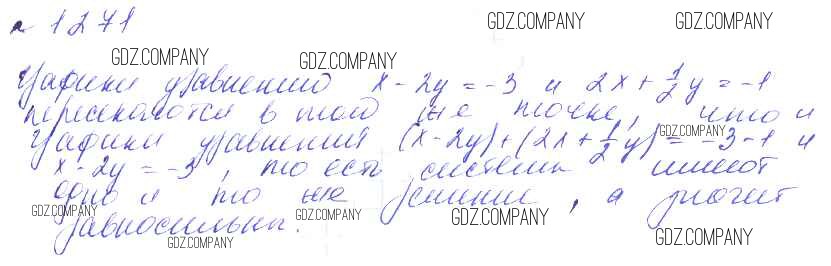 № 1271
Графики уравнений x - 2y = -3 и 2x + 1/2 y = -1
пересекаются в той же точке, что и
графики уравнения (x - 2y) + (2x + 1/2 y) = -3 - 1 и
x - 2y = -3, то есть системы имеют
одно и то же решение, а значит
равносильны.
GDZ.COMPANY
GDZ.COMPANY
GDZ.COMPANY
GDZ.COMPANY
GDZ.COMPANY
GDZ.COMPANY
GDZ.COMPANY
GDZ.COMPANY
GDZ.COMPANY
GDZ.COMPANY